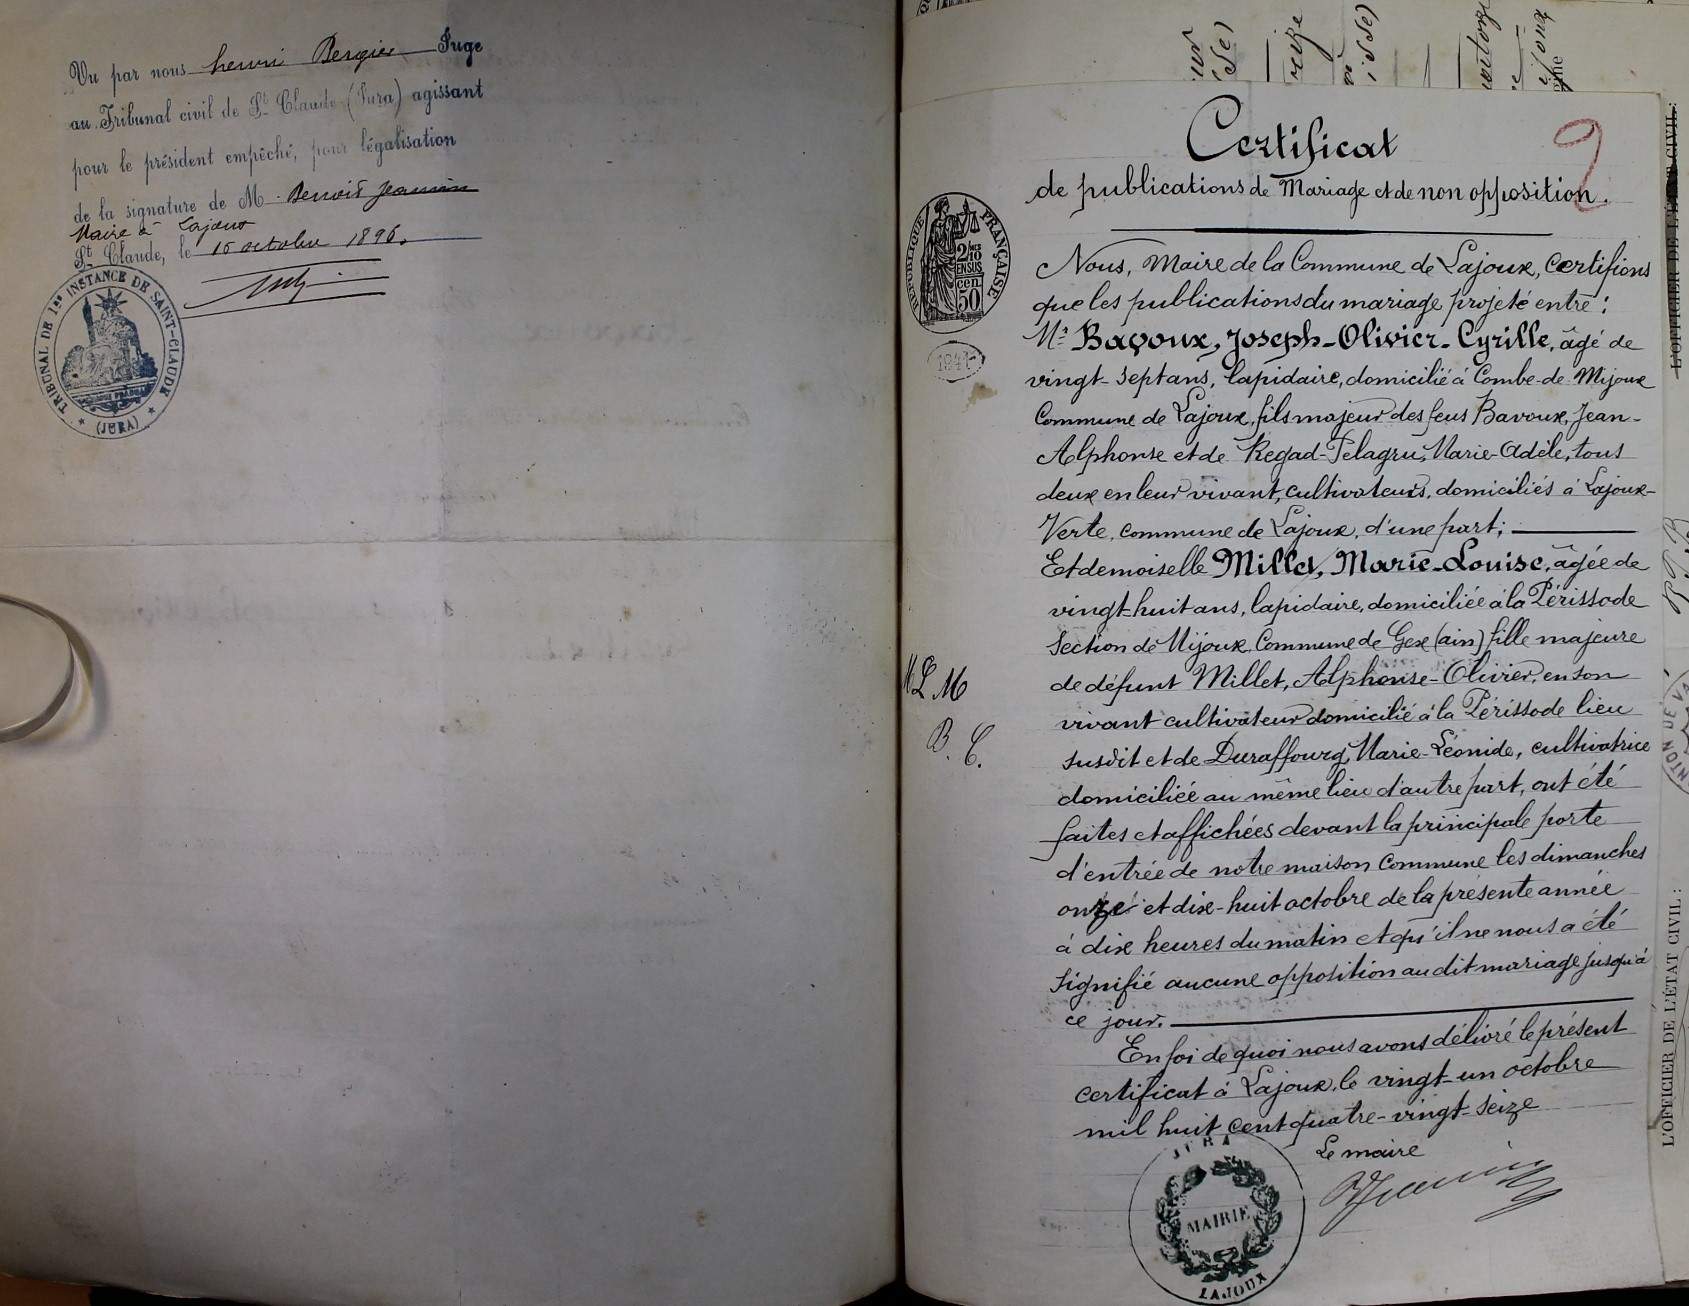 Vu par nous henri Bergier Juge
au Tribunal civil de St Claude (Jura) agissant
pour le président empêché, pour légalisation
de la signature de M. Benoit Jeannin
Maire à Lajoux
St Claude, le 15 octobre 1896.
TRIBUNAL DE 1re INSTANCE DE SAINT-CLAUDE
(JURA)
Certificat
2
de publications de Mariage et de non opposition.
RÉPUBLIQUE FRANÇAISE
2/10
EN SUS
50 cen
Nous, Maire de la Commune de Lajoux, certifions
que les publications du mariage projeté entre :
Mr Bavoux, Joseph-Olivier-Cyrille, âgé de
vingt-sept ans, lapidaire, domicilié à Combe-de-Mijoux
Commune de Lajoux, fils majeur des feus Bavoux, Jean-
Alphonse et de Regad-Pelagru, Marie-Adèle, tous
deux en leur vivant, cultivateurs, domiciliés à Lajoux-
Verte, commune de Lajoux, d'une part;
Et demoiselle Millet, Marie-Louise, âgée de
vingt-huit ans, lapidaire, domiciliée à la Périssode
Section de Mijoux, Commune de Gex (ain) fille majeure
de défunt Millet, Alphonse-Olivier, en son
M L M
vivant cultivateur domicilié à la Périssode lieu
B. C.
susdit et de Duraffourg, Marie-Léonide, cultivatrice
domiciliée au même lieu d'autre part, ont été
faites et affichées devant la principale porte
d'entrée de notre maison Commune les dimanches
onze et dix-huit octobre de la présente année
à dix heures du matin et qu'il ne nous a été
signifié aucune opposition au dit mariage jusqu'à
ce jour.
En foi de quoi nous avons délivré le présent
certificat à Lajoux, le vingt-un octobre
mil huit cent quatre-vingt-seize
Le maire
JURA
MAIRIE
LAJOUX
L'OFFICIER DE L'ÉTAT CIVIL :
L'OFFICIER DE L'ÉTAT CIVIL :